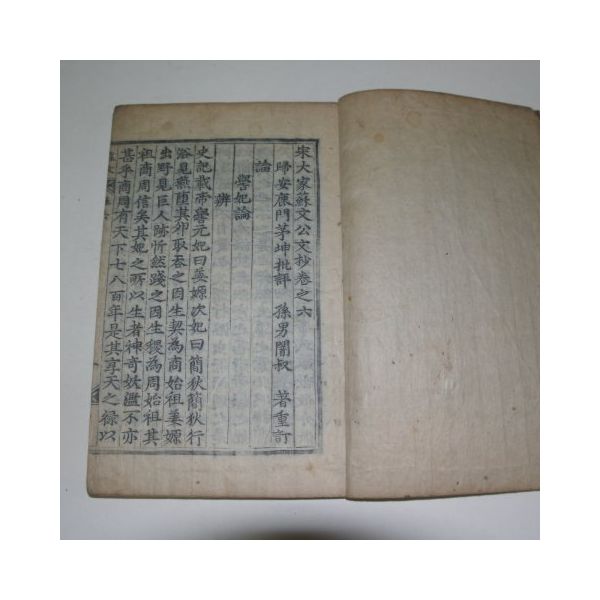 宋大家蘇文公文抄卷之六
歸安鹿門茅坤批評 孫男闇叔 著重訂
論
嚳妃論
辨
史記載帝嚳元妃曰姜嫄次妃曰簡狄簡狄行
浴見燕墮其卵取吞之因生契為商始祖姜嫄
出野見巨人跡忻然踐之因生稷為周始祖其
祖商周信矣其妃之所以生者神奇妖濫不亦
甚乎商周有天下七八百年是其享天之祿以